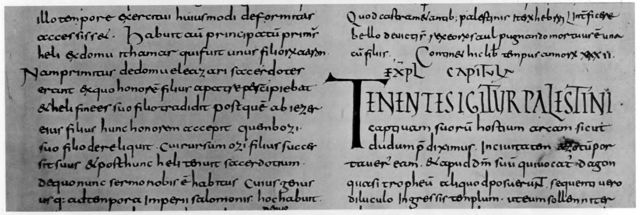 illo tempore exercitu huiusmodi deformitas
accessisset. Habuit autẽ principatũ primꝰ
heli exdomu ithamar quifuit unus filiorx aaron.
Namprimitus dedomu eleazari sacerdotes
erant exquo honorẽ filius apatre percipiebat
& heli finees suo filio tradidit postquẽ abiezer
eius filius hunc honorem accepit quem bozi
suo filio dereliquit. Cui rursum ozi filius succes
sit suus & posthunc heli tenuit sacerdotium.
dequo nunc sermo nobis ẽ habitus Cuius genus
usq; adtempora imperii salomonis hoc habuit.
Quod castramẽtantib; palestinis
bello deuicti
cũ filiis. Continet hic lib tempus annorx xxxii
EXPL CAPITULA
TENENTES IGITUR PALESTINI
captquam suorũ hostium arcam sicut
dudum p̃diximus. Inciuitatem azotũ por
tauer̃ eam. & apud dm̃ suũ qui uocat̃ dagon
quasi tropheũ aliquod posuerunt. sequenti uero
diluculo ingressis templum. ut eum sollenniter